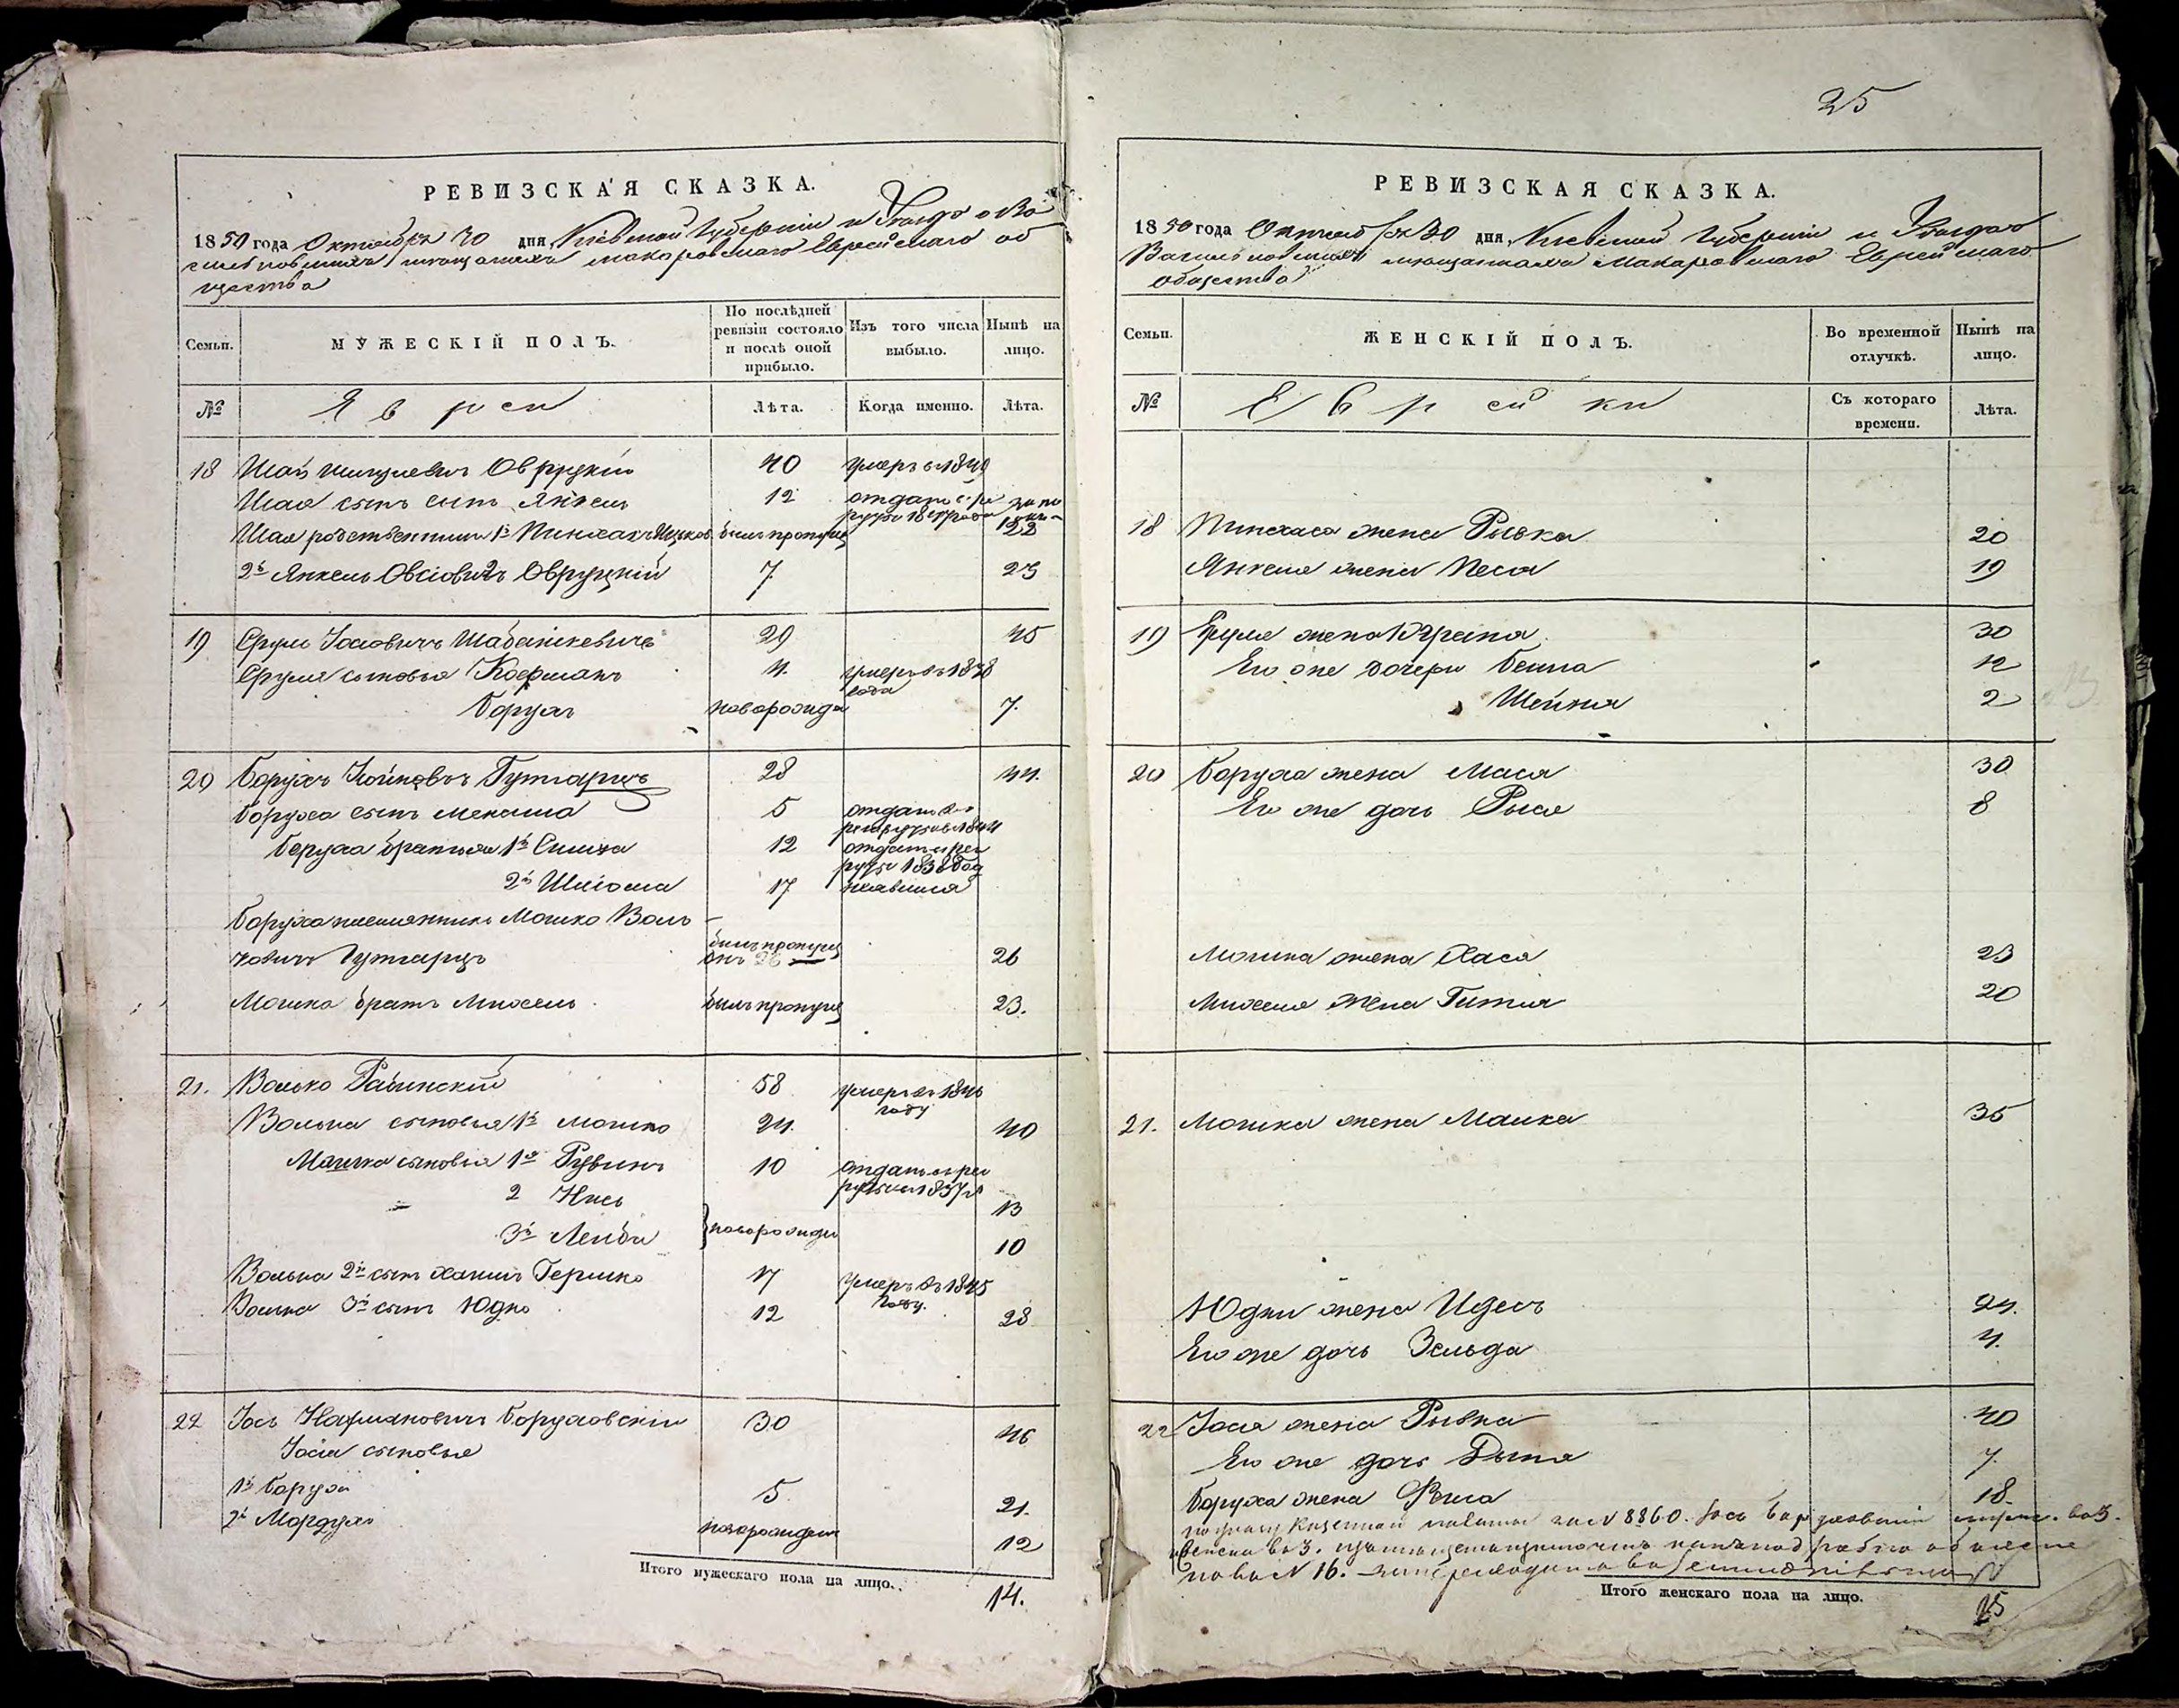 25
РЕВИЗСКАЯ СКАЗКА.
1850 года Октября 30 дня, Кіевской Губерніи и Уѣзда о Ва
сильковскихъ мѣщанахъ Макаровскаго Еврейскаго об
щества
Семьи.
МУЖЕСКІЙ ПОЛЪ.
По послѣдней ревизіи состояло и послѣ оной прибыло.
Изъ того числа выбыло.
Нынѣ на лицо.
№
Евреи
Лѣта.
Когда именно.
Лѣта.
18 Шая Овруцкій 40 умеръ 1849
Шая сынъ Янкель 12 отданъ
Шая родственники 1й Пинхасъ Ицков былъ пропущ 22
2й Янкель Овсіовичъ Овруцкій 7. 23
19 Сруль Іосіовичъ Шабашкевичъ 29 45
Сруля сыновья Кофманъ 4. умеръ въ 1838
года
Борухъ новорожде 7.
20 Борухъ Гутгарцъ 28 44.
Боруха сынъ Менаша 5 отданъ въ
рекруты въ 1844
Боруха братья 1й Симха 12 отданъ въ рек
руты 1838 год
2й Шліома 17 неявился
Боруха племянникъ Мошко Воль
ковичъ Гутгарцъ былъ пропущ
енъ 26
Мошка братъ Михель былъ пропущ 23.
21. Волько Рабинскій 58 умеръ въ 1846
году
Волька сыновья 1й Мошко 24. 40
Мошка сыновья 1й Рувинъ 10 отданъ въ рек
руты 1837
2 Нисъ 13
3й Лейба новорожде 10
Волька 2й сынъ Хаимъ Гершко 17 умеръ въ 1845
году.
Волька 3й сынъ Юдко 12 28
22 Іось Нахмановичъ Боруховскій 30 46
Іося сыновья
1й Борухъ 5. 21.
2й Мордухъ новорожденъ 12
Итого мужескаго пола на лицо. 14.
РЕВИЗСКАЯ СКАЗКА.
1850 года Октября 30 дня, Кіевской Губерніи и Уѣзда о
Васильковскихъ мѣщанахъ Макаровскаго Еврейскаго
общества
Семьи.
ЖЕНСКІЙ ПОЛЪ.
Во временной отлучкѣ.
Нынѣ на лицо.
№
Еврейки
Съ котораго времени.
Лѣта.
18 Пинхаса жена Рывка 20
Янкеля жена Песя 19
19 Сруля жена 30
Его же дочери Бейла 12
Шейня 2
20 Боруха жена Мася 30
Его же дочь Рыся 8
Мошка жена Хася 23
Михеля жена Гитля 20
21. Мошка жена Малка 35
Юдки жена Идесъ 24.
Его же дочь Зельда 4.
22 Іося жена Рывка 40
Его же дочь 7.
Боруха жена 18.
по указу Казенной палаты за № 8860. Іось Боруховскій
подъ № 16.
Итого женскаго пола на лицо. 15